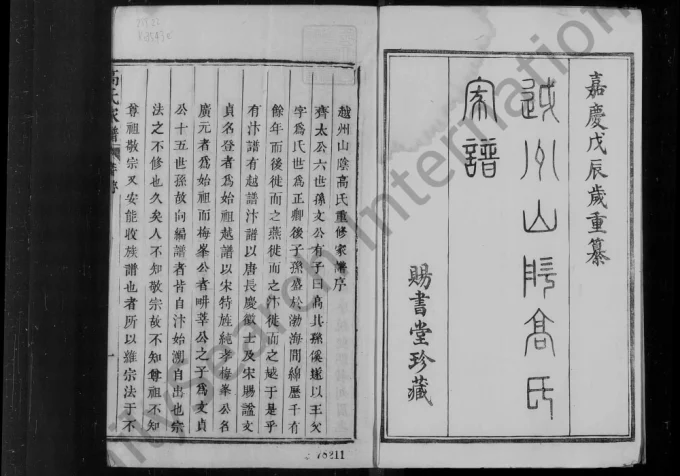 嘉慶戊辰歲重纂
越州山陰高氏
家譜
賜書堂珍藏
越州山陰高氏重修家譜序
齊太公六世孫文公有子曰高其孫傒遂以王父
字為氏世為正卿後子孫盛於渤海間綿歷千有
餘年而後徙而之燕徙而之汴徙而之越于是乎
有汴譜有越譜汴譜以唐長慶徵士及宋賜諡文
貞名登者為始祖越譜以宋特旌純孝梅峯公名
廣元者為始祖而梅峯公者畊莘公之子為文貞
公十五世孫故向編譜者皆自汴始溯自出也宗
法之不修也久矣人不知敬宗故不知尊祖不知
尊祖敬宗又安能收族譜也者所以維宗法于不
高氏家譜
一
78211